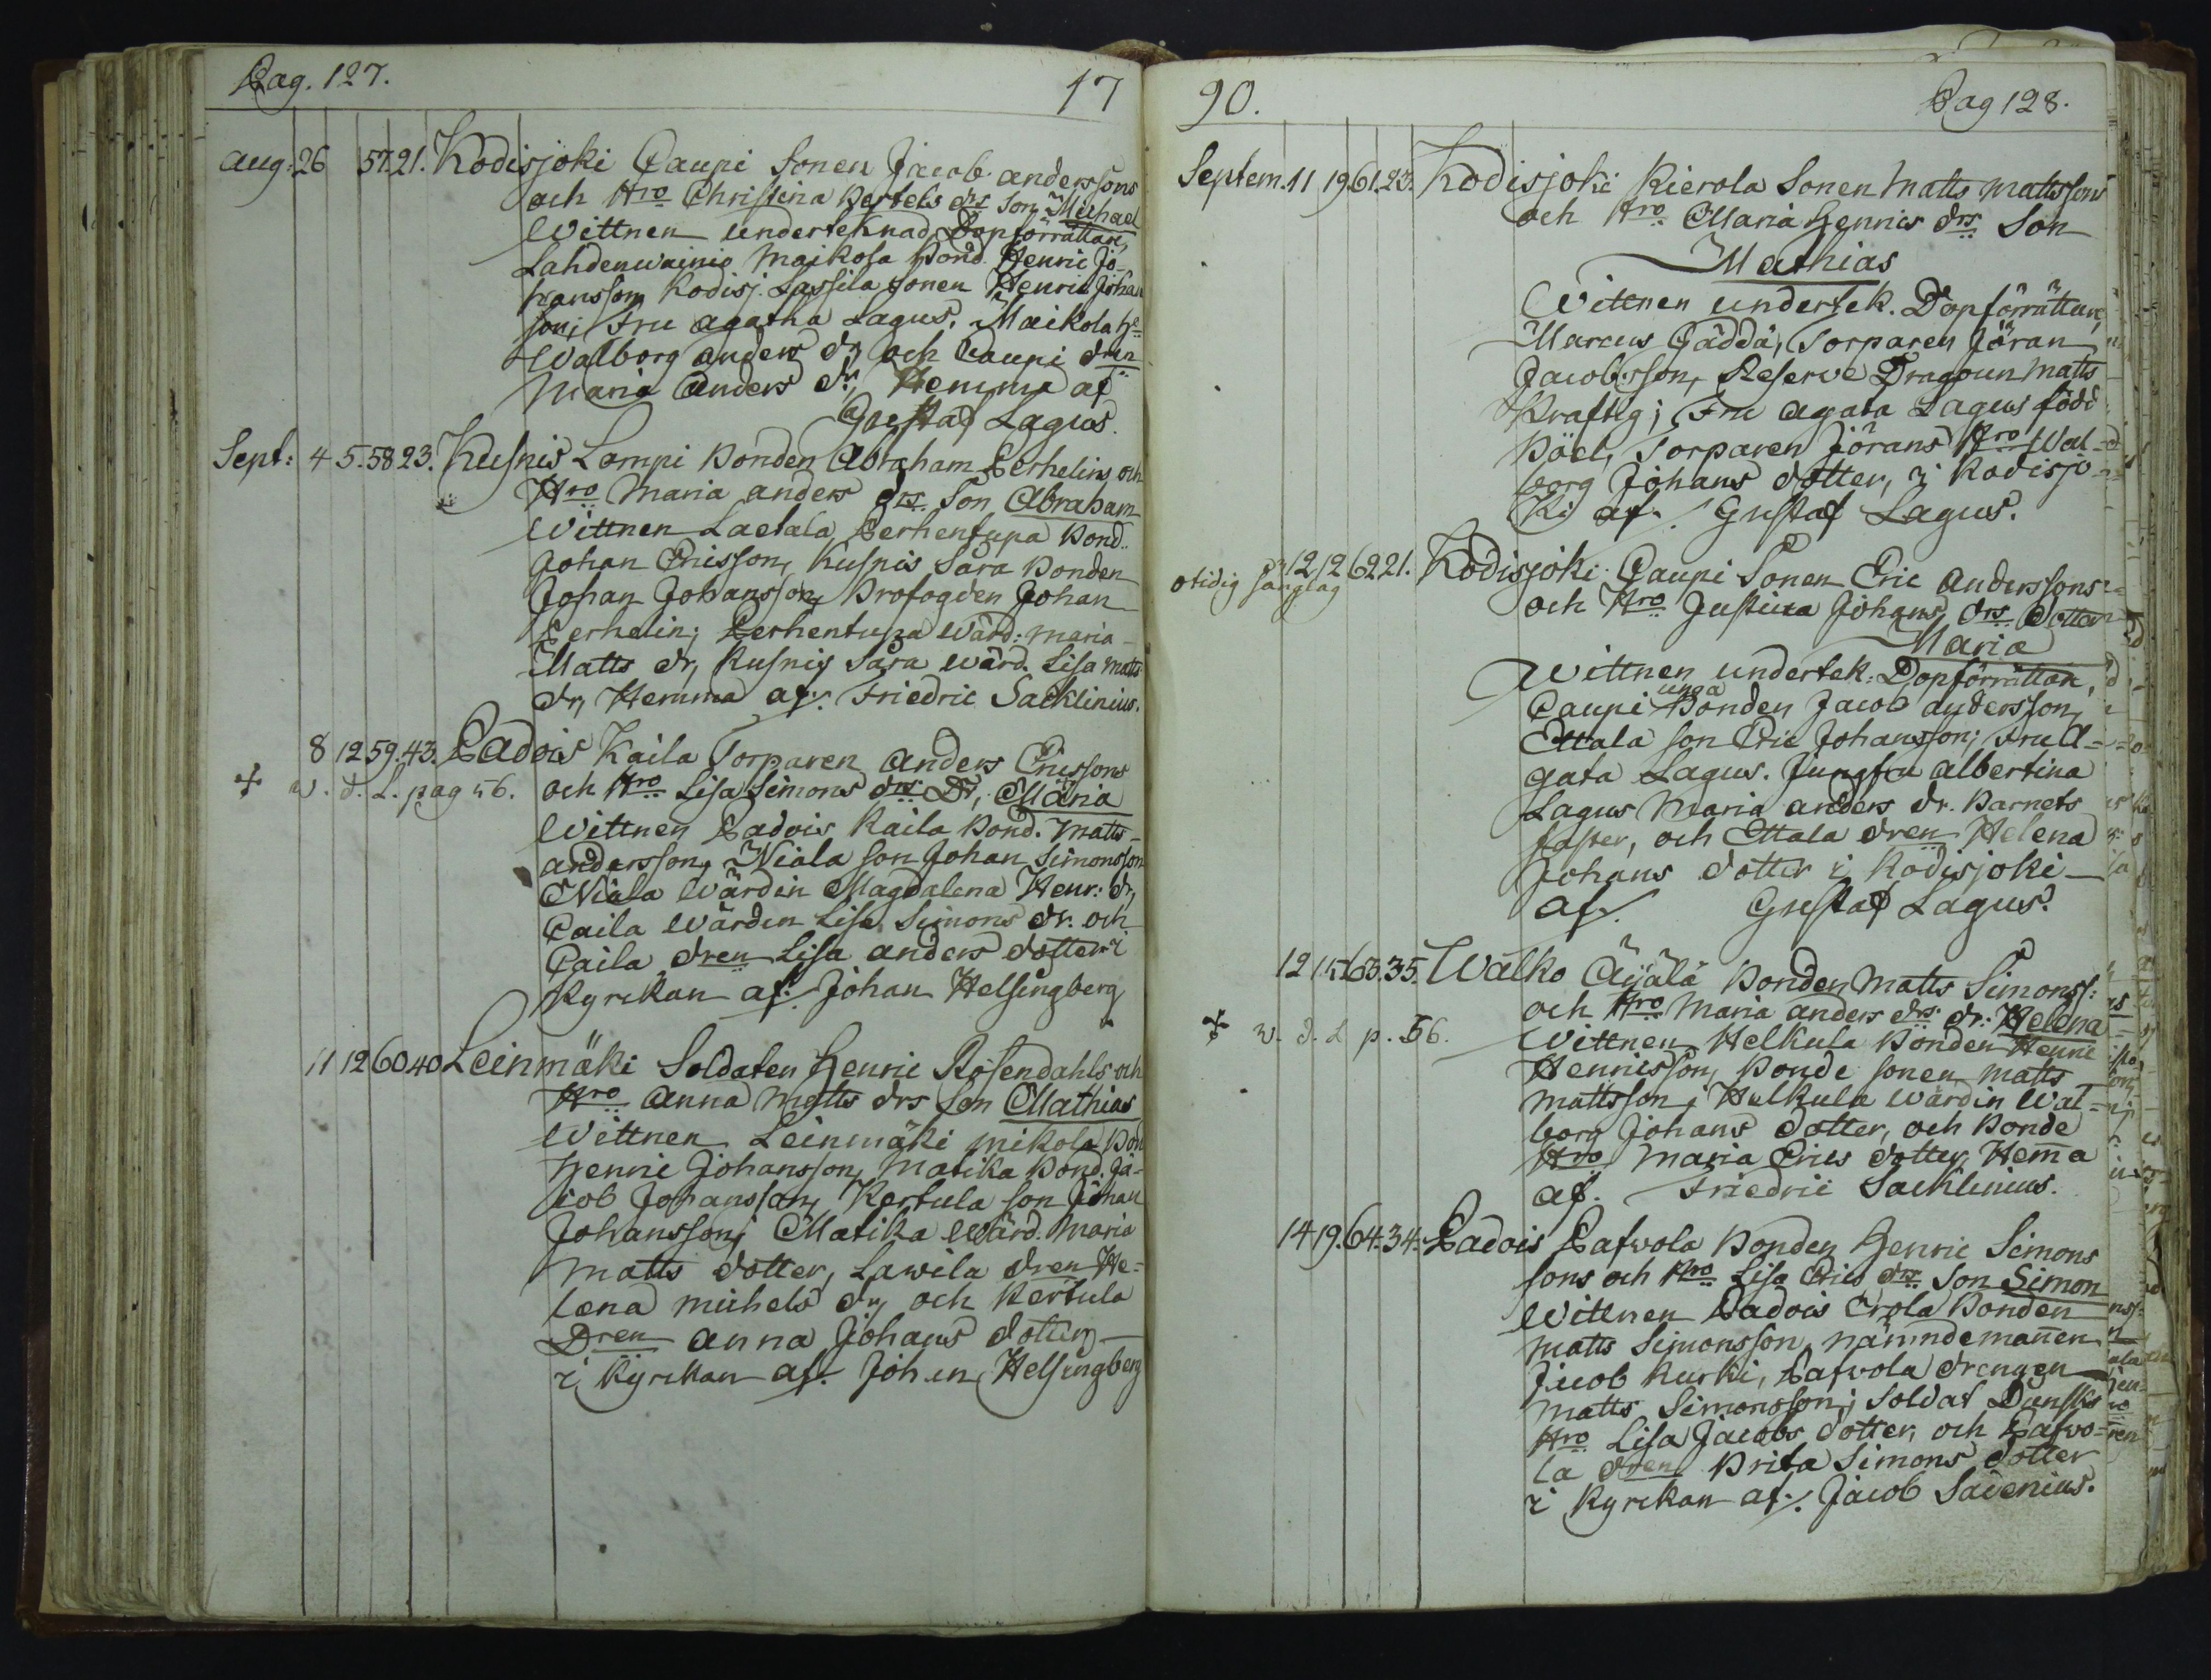 Pag. 127. 17
Aug: 26 57.21. Kodisjoki Caupi Sonen Jacob anderssons
och Hro Christina Bertels drs Son Michael
Wittnen underteknad Dopförrättare,
Lahdenwainio Maikola Bond. Henric Jo-
hansson, Kodisj. Lassila sonen Henric Johan
son; Fru Agatha Lagus. Maikola
Walborg anders dr, och Caupi dren
Maria Anders dr, Hemma af
Gustaf Lagus.
Sept: 4 5. 58 23. Kusnis Lampi Bonden Abraham Perhelins och
Hro Maria anders drs Son Abraham
Wittnen Laetala, Perhentupa Bond.
Johan Ericsson, Kusnis Sara Bonden
Johan Johansson, Brofogden Johan
Perhelin; Perhentupa wärd: maria
Matts dr, Kusnis Sara wärd. Lisa matts
dr, Hemma af: Friedric Sacklinius.
8 12 59. 43. Padois Kaila Torparen anders Ericssons
+ w. d. L. pag 56. och Hro Lisa Simons drs Dr, Maria
Wittnen Padois Kaila Bond. Matts
andersson, Niala son Johan Simonsson
Niala wärdin Magdalena Henr: dr,
Caila wärden Lisa Simons dr. och
Caila dren Lisa anders dotter i
Kyrckan af: Johan Helsingberg
11 12 60 40 Leinmäki Soldaten Henric Rosendahls och
Hro Anna Matts drs son Mathias
Wittnen Leinmäki mikola Bon
Henric Johansson, Matika Bond. Ja-
cob Johansson, Kertula son Johan
Johansson; Matika wärd. Maria
Matts dotter, Lawila dren He-
lena michels dr, och Kertula
Dren anna Johans dotter
i Kyrckan af: Johan Helsingberg
90. Pag 128.
Septem. 11 19. 61. 23. Kodisjoki Kierola Sonen Matts Mattssons
och Hro Maria Henrics drs Son
Mathias
Wittnen undertek. Dopförrättare,
Marcus Gäddä, Torparen Jöran
Jacobsson, Reserve Dragoun Matts
Kraftig; Fru Agata Lagus född
Böel, Torparen Jörans Hro Wal-
borg Johans dotter, i Kodisjo-
ki af. Gustaf Lagus.
otidig 12 12 62 21. Kodisjoki Caupi Sonen Eric Anderssons
och Hro Justina Johans drs Dotter
Maria
Wittnen undertek: Dopförrättare,
unga
Caupi Bonden Jacob andersson,
Ettala son Eric Johansson; Fru A-
gata Lagus. Jungfru Albertina
Lagus Maria anders dr. Barnets
faster, och Ettala dren Helena
Johans dotter i Kodisjoki
af. Gustaf Lagus.
12 15 63. 35. Wälko Äijälä Bonden Matts Simonss:
och Hro Maria anders drs dr: Helena
+ w. d. L p. 56. Wittnen Helkula Bonden Henric
Henrisson, Bonde sonen Matts
Mattsson; Helkula wärdin Wal-
borg Johans dotter, och Bonde
Hro Maria Erics dotter, Hema
af. Friedric Sacklinius.
14 19. 64. 34. Padois Pafwola Bonden Henric Simons
sons och Hro Lisa Erics drs Son Simon
Wittnen Padois Erola Bonden
Matts Simonsson, nämndemanen
Jacob Kurki, Pafwola drengen
Matts Simonsson; Soldat Dunsks
Hro Lisa Jacobs dotter, och Pafwo-
la dren Brita Simons dotter
i Kyrckan af: Jacob Savenius.